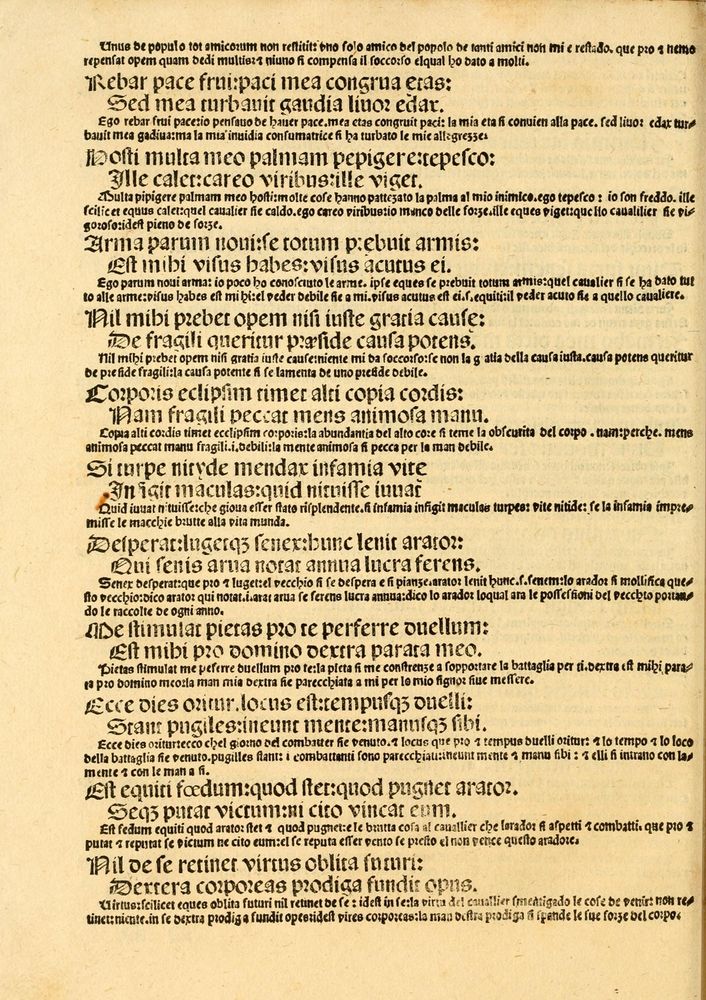 Unus de populo tot amicorum non restitit: vno solo amico del popolo de tanti amici non mi e restado. que pro ⁊ nemo
repensat opem quam dedi multis: ⁊ niuno si compensa il soccorso elqual ho dato a molti.
Rebar pace frui: paci mea congrua etas:
Sed mea turbauit gaudia liuor edax.
Ego rebar frui pace: io pensauo de hauer pace. mea etas congruit paci: la mia eta si conuien alla pace. sed liuor edax tur⸗
bauit mea gadiua: ma la mia inuidia consumatrice si ha turbato le mie allegrezze.
Hosti multa meo palmam pepigere: tepesco:
Ille calet: careo viribus: ille viget.
Multa pipigere palmam meo hosti: molte cose hanno pattezato la palma al mio inimico. ego tepesco: io son freddo. ille
scilicet equus calet: quel caualier sie caldo. ego careo viribus: io manco delle forze. ille eques viget: quello caualilier sie vi⸗
goroso: idest pieno de forze.
Arma parum noui: se totum prębuit armis:
Est mihi visus habes: visus acutus ei.
Ego parum noui arma: io poco ho conosciuto le arme. ipse eques se prebuit totum armis: quel caualier si se ha dato tut
to alle arme: visus habes est mihi: el veder debile sie a mi. visus acutus est ei. s. equiti: il veder acuto sie a quello caualiere.
Nil mihi prębet opem nisi iuste gratia causę:
De fragili queritur præside causa potens.
Nil mihi prebet opem nisi gratia iuste cause: niente mi da soccorso: se non la g atia della causa iusta. causa potens queritur
de preside fragili: la causa potente si se lamenta de uno preside debile.
Corporis eclipsim timet alti copia cordis:
Nam fragili peccat mens animosa manu.
Copia alti cordis timet ecclipsim corporis: la abundantia del alto core si teme la obscurita del corpo. nam: perche. mens
animosa peccat manu fragili. i. debili: la mente animosa si pecca per la man debile.
Si turpe nityde mendax infamia vite
In igit maculas: quid nituisse iuuat
Quid iuuat nituisse: che gioua esser stato risplendente. si infamia infigit maculas turpes: vite nitide: se la infamia impre⸗
misse le macchie brutte alla vita munda.
Desperat: lugetqꝫ senex: hunc lenit arator:
Qui senis arua notat annua lucra ferens.
Senex desperat: que pro ⁊ luget: el vecchio si se despera e si pianze. arator lenit hunc. s. senem: lo arador si mollifica que⸗
sto vecchio: dico arator qui notat. i. arat arua se ferens lucra annua: dico lo arador loqual ara le possessioni del vecchio portan⸗
do le raccolte de ogni anno.
Me stimulat pietas pro te perferre duellum:
Est mihi pro domino dextra parata meo.
Pietas stimulat me peferre duellum pro te: la pieta si me constrenze a sopportare la battaglia per ti. dextra est mihi para⸗
ta pro domino meo: la man mia dextra sie parecchiata a mi per lo mio signor siue messere.
Ecce dies oritur. locus est: tempusqꝫ duelli:
Stant pugiles: ineunt mente: manusqꝫ sibi.
Ecce dies oritur: ecco chel giorno del combauer sie venuto. ⁊ locus que pro ⁊ tempus duelli oritur: ⁊ lo tempo ⁊ lo loco
della battaglia sie venuto. pugilles stant: i combattanti sono parecchiati: ineunt mente ⁊ manu sibi: ⁊ elli si intrano con la⸗
mente ⁊ con le man a si.
Est equiti fœdum: quod stet: quod pugnet arator.
Seqꝫ putat victum: ni cito vincat eum.
Est fedum equiti quod arator stet ⁊ quod pugnet: e le brutta cosa al cauallier che larador si aspetti ⁊ combatti. que pro ⁊
putat ⁊ reputat se victum ne cito eum: el se reputa esser vento se presto el non vence questo aradore.
Nil de se retinet virtus oblita futuri:
Dextera corporeas prodiga fundit opus.
Virtus: scilicet eques oblita futuri nil retinet de se: idest in se: la virtu del cauallier smentigado le cose de venir: non re⸗
tinet: niente. in se dextra prodiga fundit opes: idest vires corporeas: la man destra prodiga si spande le sue forze del corpo.